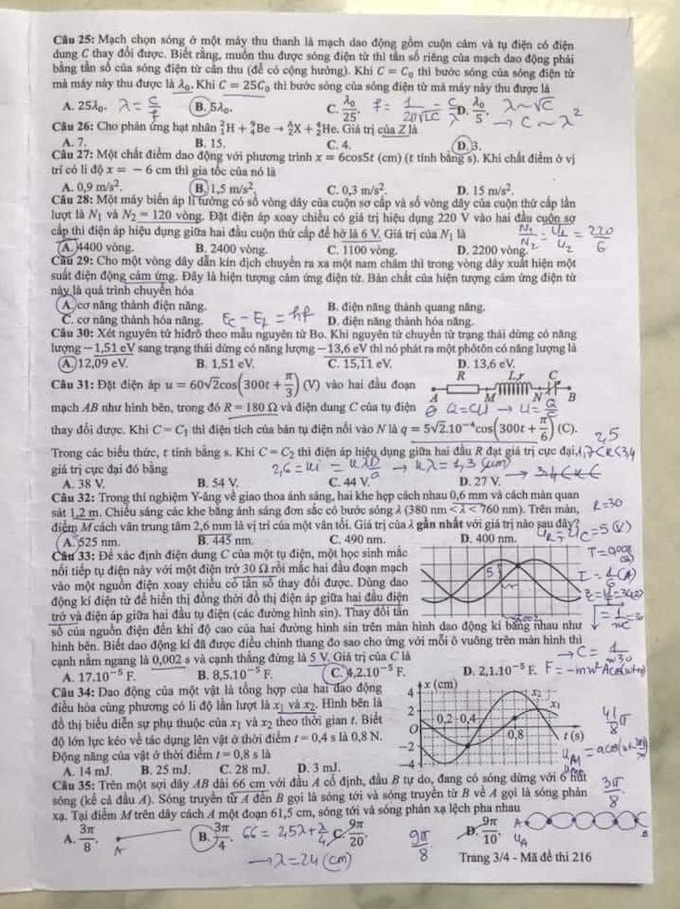 Câu 25: Mạch chọn sóng ở một máy thu thanh là mạch dao động gồm cuộn cảm và tụ điện có điện
dung C thay đổi được. Biết rằng, muốn thu được sóng điện từ thì tần số riêng của mạch dao động phải
bằng tần số của sóng điện từ cần thu (để có cộng hưởng). Khi C = C₀ thì bước sóng của sóng điện từ
mà máy này thu được là λ₀. Khi C = 25C₀ thì bước sóng của sóng điện từ mà máy này thu được là
A. 25λ₀. λ = c/f B. 5λ₀. C. λ₀/25. f = 1/2π√LC = c/λ D. λ₀/5. λ ~ √C
→ C ~ λ²
Câu 26: Cho phản ứng hạt nhân ²₁H + ⁹₄Be → ᴬzX + ⁴₂He. Giá trị của Z là
A. 7. B. 15. C. 4. D. 3.
Câu 27: Một chất điểm dao động với phương trình x = 6cos5t (cm) (t tính bằng s). Khi chất điểm ở vị
trí có li độ x = − 6 cm thì gia tốc của nó là
A. 0,9 m/s². B. 1,5 m/s². C. 0,3 m/s². D. 15 m/s².
Câu 28: Một máy biến áp lí tưởng có số vòng dây của cuộn sơ cấp và số vòng dây của cuộn thứ cấp lần
lượt là N₁ và N₂ = 120 vòng. Đặt điện áp xoay chiều có giá trị hiệu dụng 220 V vào hai đầu cuộn sơ
cấp thì điện áp hiệu dụng giữa hai đầu cuộn thứ cấp để hở là 6 V. Giá trị của N₁ là
N₁/N₂ = U₁/U₂ = 220/6
A. 4400 vòng. B. 2400 vòng. C. 1100 vòng. D. 2200 vòng.
Câu 29: Cho một vòng dây dẫn kín dịch chuyển ra xa một nam châm thì trong vòng dây xuất hiện một
suất điện động cảm ứng. Đây là hiện tượng cảm ứng điện từ. Bản chất của hiện tượng cảm ứng điện từ
này là quá trình chuyển hóa
A. cơ năng thành điện năng. B. điện năng thành quang năng.
C. cơ năng thành hóa năng. D. điện năng thành hóa năng.
Câu 30: Xét nguyên tử hiđrô theo mẫu nguyên tử Bo. Khi nguyên tử chuyển từ trạng thái dừng có năng
lượng −1,51 eV sang trạng thái dừng có năng lượng −13,6 eV thì nó phát ra một phôtôn có năng lượng là
A. 12,09 eV. B. 1,51 eV. C. 15,11 eV. D. 13,6 eV.
Câu 31: Đặt điện áp u = 60√2cos(300t + π/3) (V) vào hai đầu đoạn
R L,r C
A M N B
mạch AB như hình bên, trong đó R = 180 Ω và điện dung C của tụ điện
Q = CU → U = Q/C
thay đổi được. Khi C = C₁ thì điện tích của bản tụ điện nối vào N là q = 5√2.10⁻⁴cos(300t + π/6) (C).
Trong các biểu thức, t tính bằng s. Khi C = C₂ thì điện áp hiệu dụng giữa hai đầu R đạt giá trị cực đại,
giá trị cực đại đó bằng
A. 38 V. B. 54 V. C. 44 V. D. 27 V.
Câu 32: Trong thí nghiệm Y-âng về giao thoa ánh sáng, hai khe hẹp cách nhau 0,6 mm và cách màn quan
sát 1,2 m. Chiếu sáng các khe bằng ánh sáng đơn sắc có bước sóng λ (380 nm < λ < 760 nm). Trên màn,
R = 30
điểm M cách vân trung tâm 2,6 mm là vị trí của một vân tối. Giá trị của λ gần nhất với giá trị nào sau đây?
A. 525 nm. B. 445 nm. C. 490 nm. D. 400 nm.
Câu 33: Để xác định điện dung C của một tụ điện, một học sinh mắc
nối tiếp tụ điện này với một điện trở 30 Ω rồi mắc hai đầu đoạn mạch
vào một nguồn điện xoay chiều có tần số thay đổi được. Dùng dao
động kí điện tử để hiển thị đồng thời đồ thị điện áp giữa hai đầu điện
trở và điện áp giữa hai đầu tụ điện (các đường hình sin). Thay đổi tần
số của nguồn điện đến khi độ cao của hai đường hình sin trên màn hình dao động kí bằng nhau như
hình bên. Biết dao động kí đã được điều chỉnh thang đo sao cho ứng với mỗi ô vuông trên màn hình thì
cạnh nằm ngang là 0,002 s và cạnh thẳng đứng là 5 V. Giá trị của C là
A. 17.10⁻⁵ F. B. 8,5.10⁻⁵ F. C. 4,2.10⁻⁵ F. D. 2,1.10⁻⁵ F.
Câu 34: Dao động của một vật là tổng hợp của hai dao động
điều hòa cùng phương có li độ lần lượt là x₁ và x₂. Hình bên là
đồ thị biểu diễn sự phụ thuộc của x₁ và x₂ theo thời gian t. Biết
độ lớn lực kéo về tác dụng lên vật ở thời điểm t = 0,4 s là 0,8 N.
Động năng của vật ở thời điểm t = 0,8 s là
A. 14 mJ. B. 25 mJ. C. 28 mJ. D. 3 mJ.
x (cm)
4
2
O
−2
−4
0,2 0,4
0,8
x₂
x₁
t (s)
Câu 35: Trên một sợi dây AB dài 66 cm với đầu A cố định, đầu B tự do, đang có sóng dừng với 6 nút
sóng (kể cả đầu A). Sóng truyền từ A đến B gọi là sóng tới và sóng truyền từ B về A gọi là sóng phản
xạ. Tại điểm M trên dây cách A một đoạn 61,5 cm, sóng tới và sóng phản xạ lệch pha nhau
3π/8
A. 3π/8. B. 3π/4. C. 9π/20. D. 9π/10.
→ λ = 24 (cm)
9π/8
Trang 3/4 - Mã đề thi 216